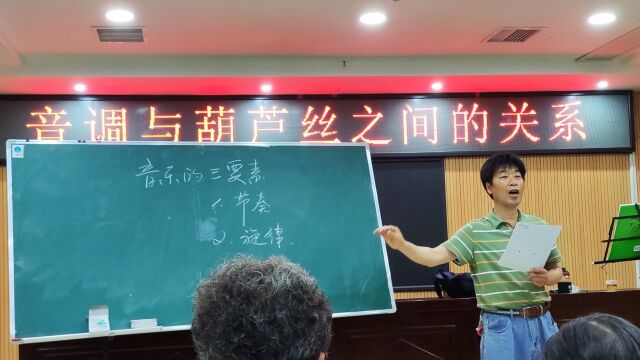 音调与葫芦丝之间的关系
音乐的三要素
1.节奏
2.旋律.